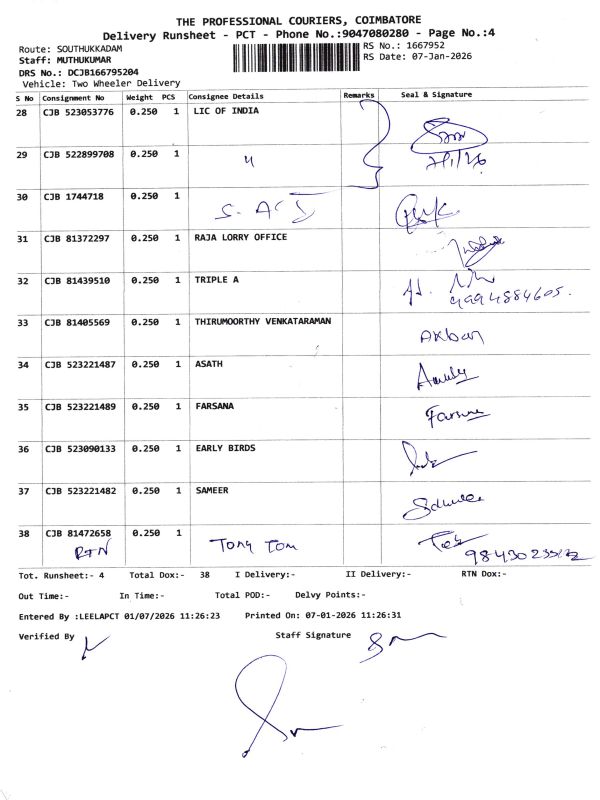 THE PROFESSIONAL COURIERS, COIMBATORE
Delivery Runsheet - PCT - Phone No.:9047080280 - Page No.:4
Route: SOUTHUKKADAM RS No.: 1667952
Staff: MUTHUKUMAR RS Date: 07-Jan-2026
DRS No.: DCJB166795204
Vehicle: Two Wheeler Delivery
S No Consignment No Weight PCS Consignee Details Remarks Seal & Signature
28 CJB 523053776 0.250 1 LIC OF INDIA
29 CJB 522899708 0.250 1 " 7/1/26
30 CJB 1744718 0.250 1
31 CJB 81372297 0.250 1 RAJA LORRY OFFICE
32 CJB 81439510 0.250 1 TRIPLE A
9994884605.
33 CJB 81405569 0.250 1 THIRUMOORTHY VENKATARAMAN Akbar
34 CJB 523221487 0.250 1 ASATH
35 CJB 523221489 0.250 1 FARSANA Farsana
36 CJB 523090133 0.250 1 EARLY BIRDS
37 CJB 523221482 0.250 1 SAMEER
38 CJB 81472658 0.250 1
RTN Tony Tom
Tot. Runsheet:- 4 Total Dox:- 38 I Delivery:- II Delivery:- RTN Dox:-
Out Time:- In Time:- Total POD:- Delvy Points:-
Entered By :LEELAPCT 01/07/2026 11:26:23 Printed On: 07-01-2026 11:26:31
Verified By Staff Signature